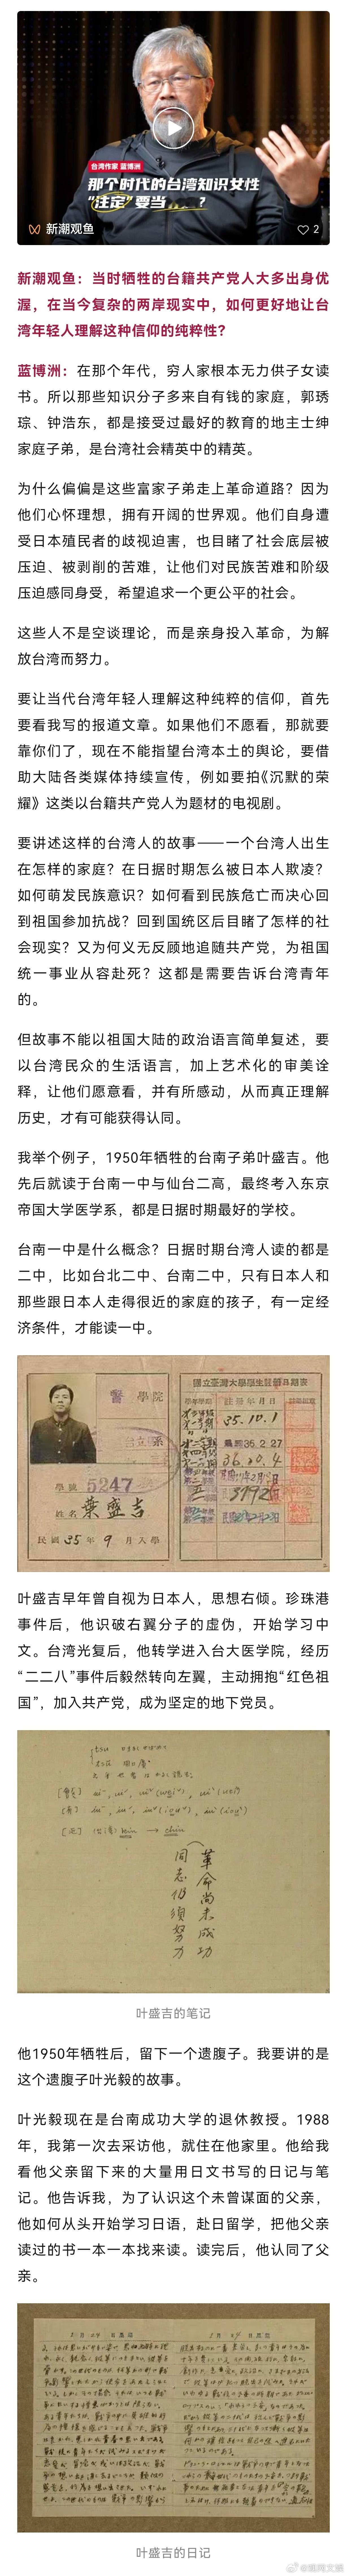 台湾作家 蓝博洲
那个时代的台湾知识女性
“注定”要当……？
新潮观鱼
2
新潮观鱼：当时牺牲的台籍共产党人大多出身优
渥，在当今复杂的两岸现实中，如何更好地让台
湾年轻人理解这种信仰的纯粹性？
蓝博洲：在那个年代，穷人家根本无力供子女读
书。所以那些知识分子多来自有钱的家庭，郭琇
琮、钟浩东，都是接受过最好的教育的地主士绅
家庭子弟，是台湾社会精英中的精英。
为什么偏偏是这些富家子弟走上革命道路？因为
他们心怀理想，拥有开阔的世界观。他们自身遭
受日本殖民者的歧视迫害，也目睹了社会底层被
压迫、被剥削的苦难，让他们对民族苦难和阶级
压迫感同身受，希望追求一个更公平的社会。
这些人不是空谈理论，而是亲身投入革命，为解
放台湾而努力。
要让当代台湾年轻人理解这种纯粹的信仰，首先
要看我写的报道文章。如果他们不愿看，那就要
靠你们了，现在不能指望台湾本土的舆论，要借
助大陆各类媒体持续宣传，例如要拍《沉默的荣
耀》这类以台籍共产党人为题材的电视剧。
要讲述这样的台湾人的故事——一个台湾人出生
在怎样的家庭？在日据时期怎么被日本人欺凌？
如何萌发民族意识？如何看到民族危亡而决心回
到祖国参加抗战？回到国统区后目睹了怎样的社
会现实？又为何义无反顾地追随共产党，为祖国
统一事业从容赴死？这都是需要告诉台湾青年
的。
但故事不能以祖国大陆的政治语言简单复述，要
以台湾民众的生活语言，加上艺术化的审美诠
释，让他们愿意看，并有所感动，从而真正理解
历史，才有可能获得认同。
我举个例子，1950年牺牲的台南子弟叶盛吉。他
先后就读于台南一中与仙台二高，最终考入东京
帝国大学医学系，都是日据时期最好的学校。
台南一中是什么概念？日据时期台湾人读的都是
二中，比如台北二中、台南二中，只有日本人和
那些跟日本人走得很近的家庭的孩子，有一定经
济条件，才能读一中。
醫 學院
學號 5247
姓名 葉盛吉
民國 35 年 9 月入學
國立臺灣大學學生註冊日期表
35.10.1
36.2.27
36.20.4
叶盛吉早年曾自视为日本人，思想右倾。珍珠港
事件后，他识破右翼分子的虚伪，开始学习中
文。台湾光复后，他转学进入台大医学院，经历
“二二八”事件后毅然转向左翼，主动拥抱“红色祖
国”，加入共产党，成为坚定的地下党员。
革命尚未成功
同志仍须努力
叶盛吉的笔记
他1950年牺牲后，留下一个遗腹子。我要讲的是
这个遗腹子叶光毅的故事。
叶光毅现在是台南成功大学的退休教授。1988
年，我第一次去采访他，就住在他家里。他给我
看他父亲留下来的大量用日文书写的日记与笔
记。他告诉我，为了认识这个未曾谋面的父亲，
他如何从头开始学习日语，赴日留学，把他父亲
读过的书一本一本找来读。读完后，他认同了父
亲。
叶盛吉的日记